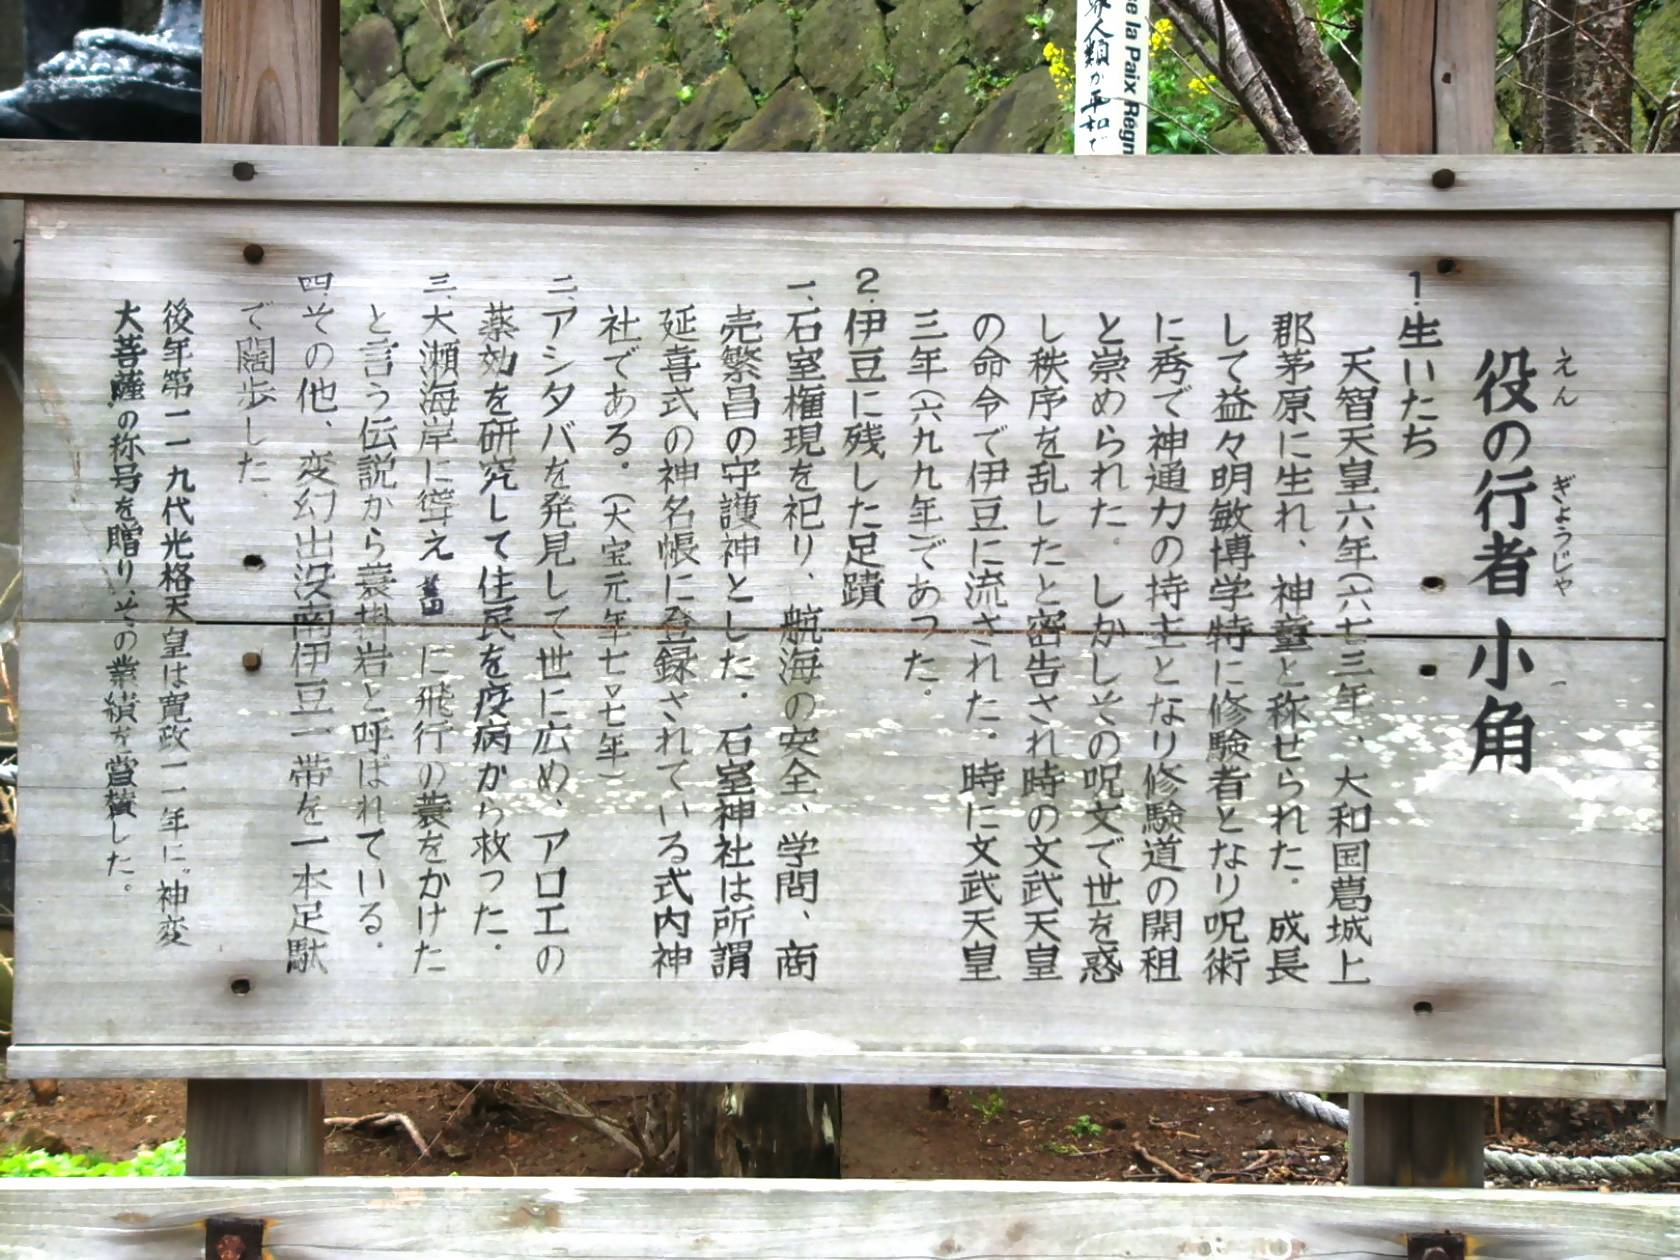 役の行者 小角
えん ぎょうじゃ
1.生いたち
天智天皇六年(六七三年、大和国葛城上
郡茅原に生れ、神童と称せられた.成長
して益々明敏博学特に修験者となり呪術
に秀で神通力の持主となり修験道の開祖
と崇められた。しかしその呪文で世を惑
し秩序を乱したと密告され時の文武天皇
の命令で伊豆に流された.時に文武天皇
三年(六九九年)であった。
2.伊豆に残した足蹟
一、石室権現を祀り、航海の安全、学問、商
売繁昌の守護神とした.石室神社は所謂
延喜式の神名帳に登録されている式内神
社である.(大宝元年七〇七年)
二、アシタバを発見して世に広め、アロエの
薬効を研究して住民を疫病から救った.
三、大瀬海岸に聳え に飛行の蓑をかけた
と言う伝説から蓑掛岩と呼ばれている.
四.その他、変幻出没南伊豆一帯を一本足駄
で闊歩した.
後年第一一九代光格天皇は寛政一一年に"神変
大菩薩の称号を贈り、その業績を賞賛した。
界人類が平和で
e la Paix Règn